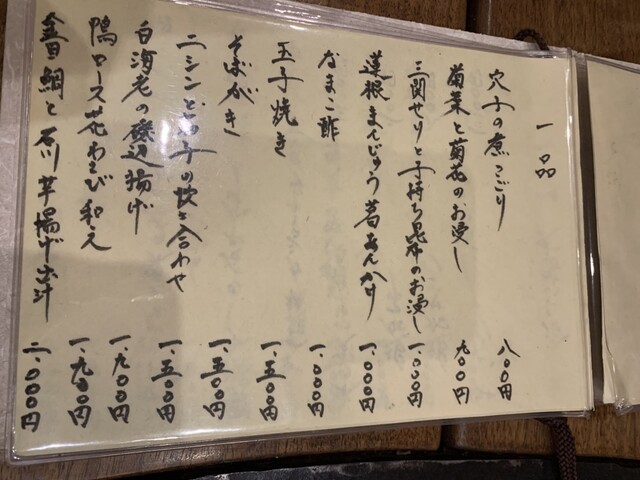 一品
穴子の煮こごり 八〇〇円
菊菜と菊花のお浸し 九〇〇円
三関せりと子持ち昆布のお浸し 一、〇〇〇円
蓮根まんじゅう葛あんかけ 一、〇〇〇円
なまこ酢 一、〇〇〇円
玉子焼き 一、五〇〇円
そばがき 一、五〇〇円
ニシンと茄子の炊き合わせ 一、五〇〇円
白海老の磯辺揚げ 一、九〇〇円
鴨ロース花わさび和え 一、九〇〇円
金目鯛と石川芋揚げ出汁 二、〇〇〇円